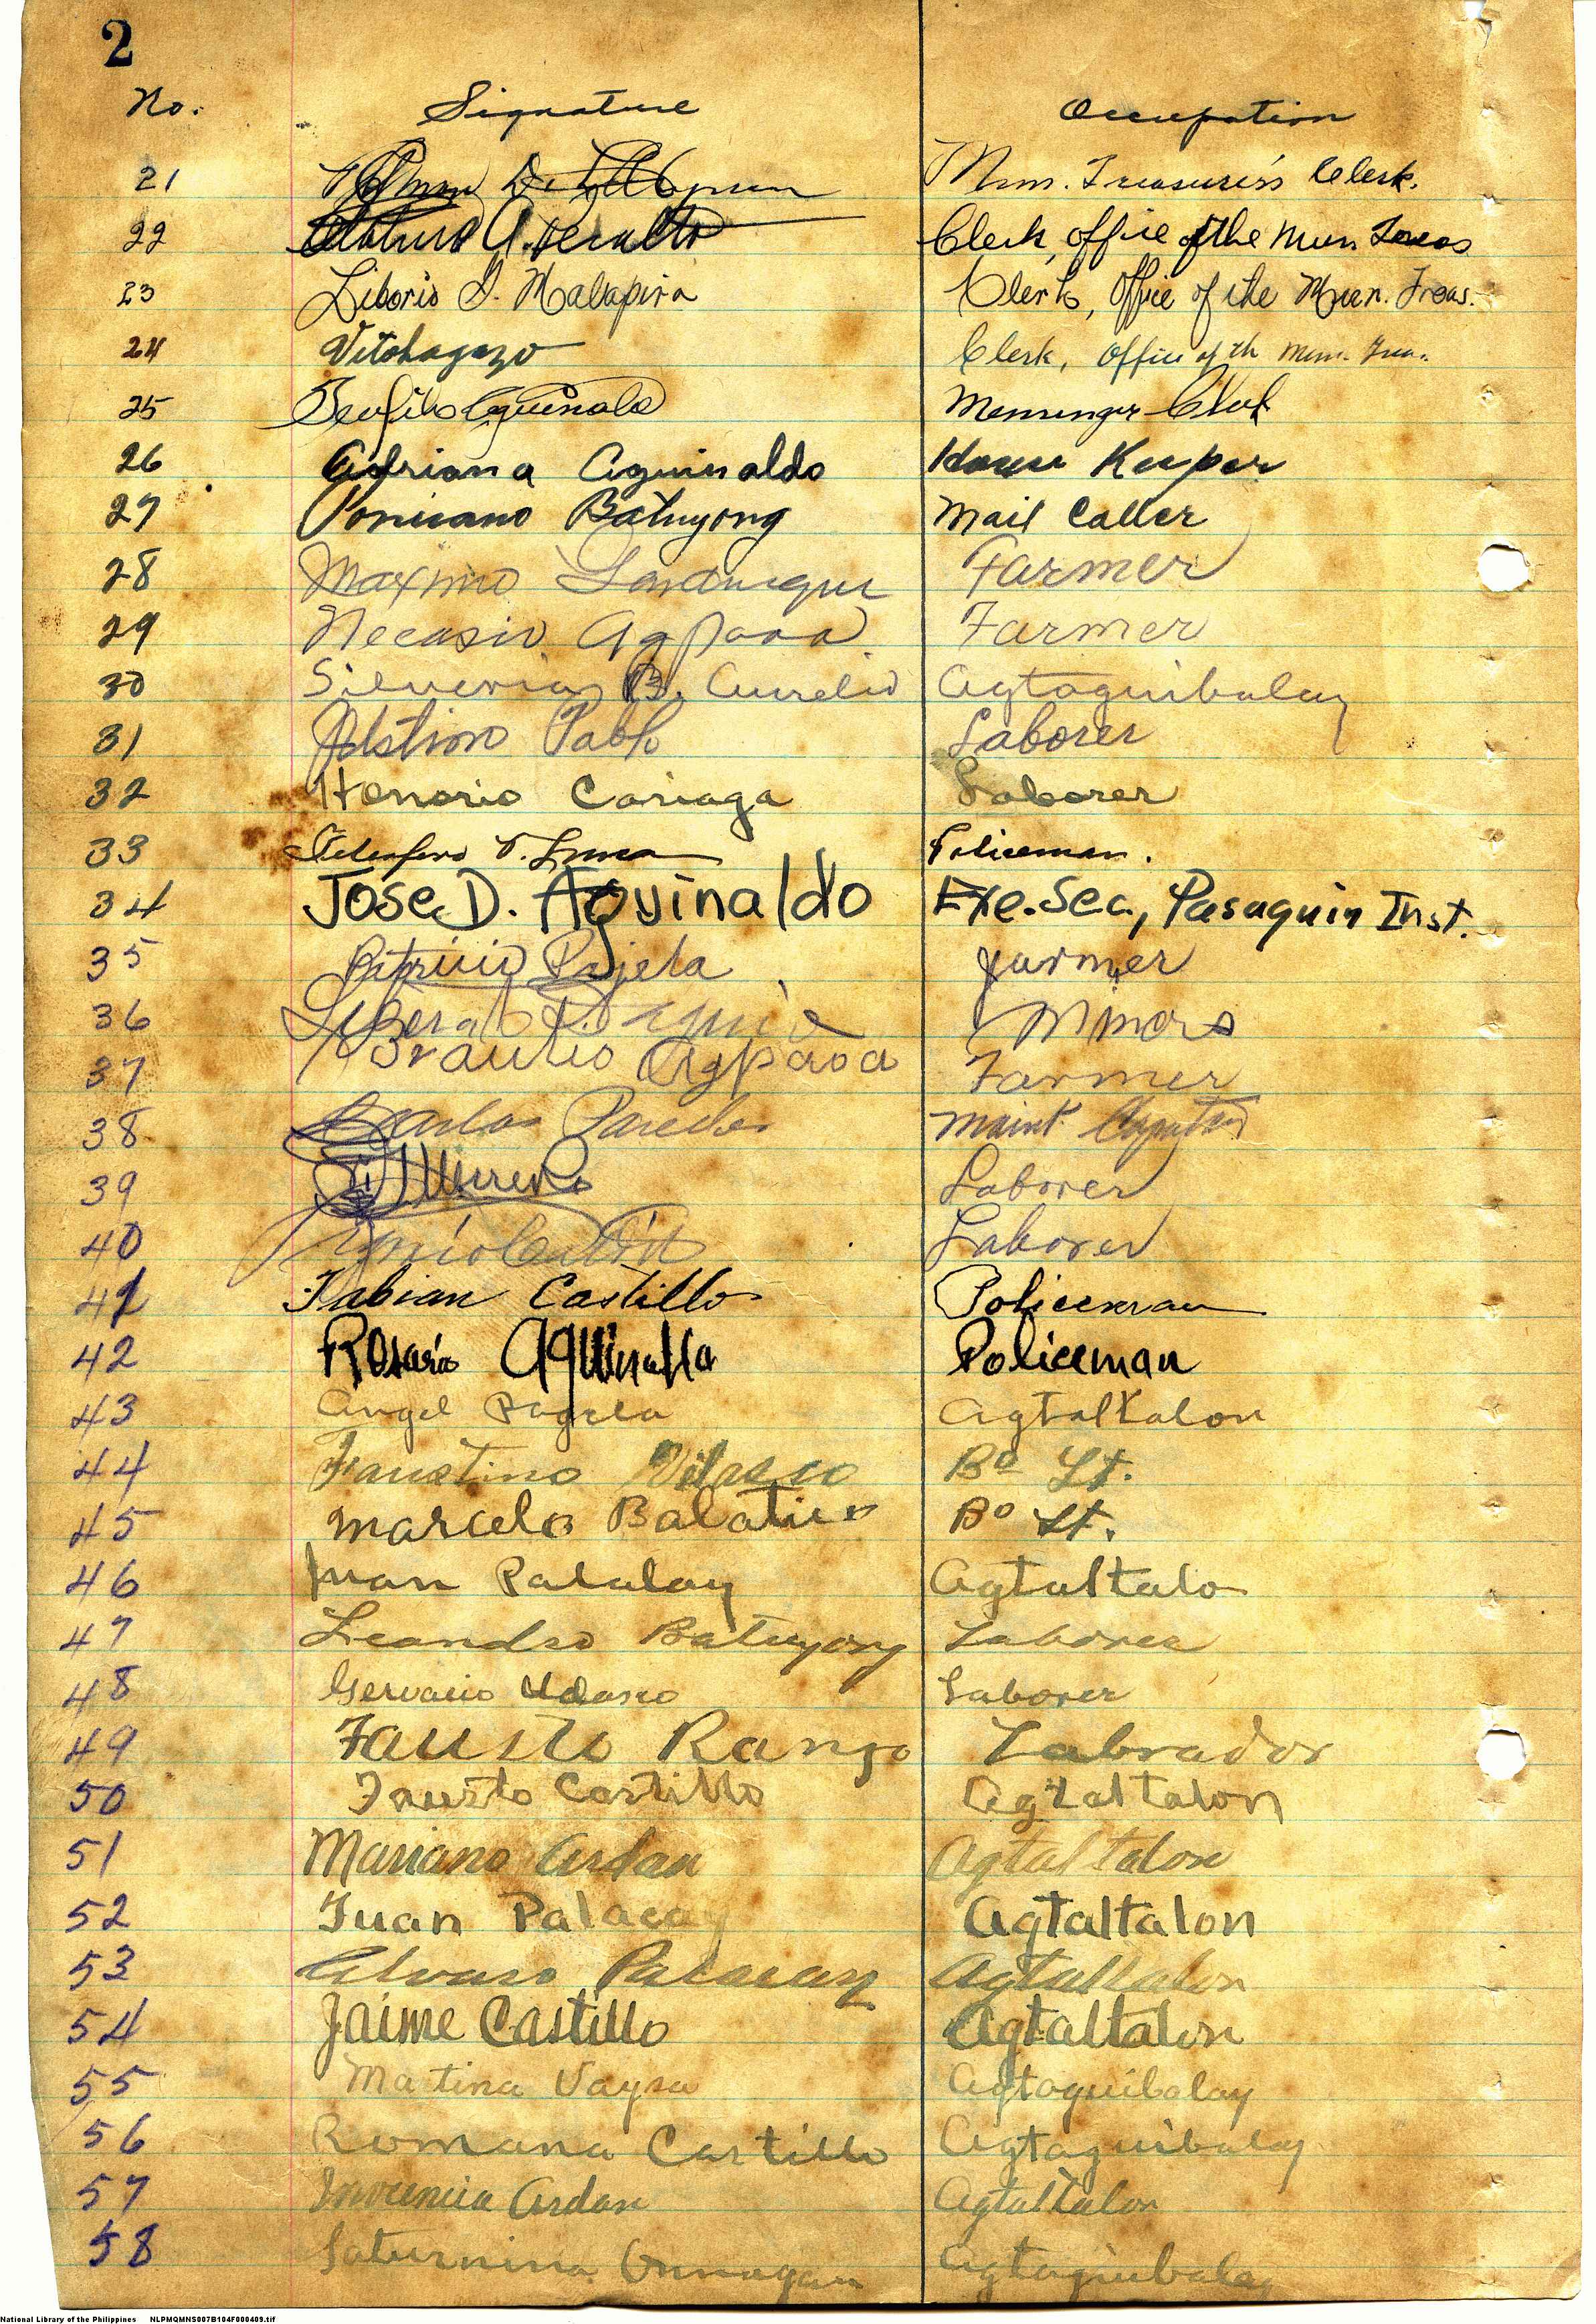 2
No. Signature Occupation
21 Mun. Treasurer's Clerk.
22 Arturo A. Peralto Clerk, office of the Mun. Treas
23 Liborio I. Malapira Clerk, Office of the Mun. Treas.
24 Vitohagazo Clerk, Office of th Mun. Trea.
25 Teofilo Aguinaldo Messenger Clerk
26 Adriana Aguinaldo House Keeper
27 Ponciano Batuyong Mail Caller
28 Maximo Farmer
29 Necasio Agpaoa Farmer
30 Silveria B. Aurelio Agtaguibalay
31 Pablo Laborer
32 Honorio Cariaga Laborer
33 Telesforo Policeman.
34 Jose D. Aguinaldo Exe. Sec., Pasuquin Inst.
35 Patricio Pajela Farmer
36 Liberato Miners
37 Braulio Agpaoa Farmer
38 Carlos Paredes Maint
39 Laborer
40 Laborer
41 Fabian Castillo Policeman
42 Rosario Aguinalda Policeman
43 Angel Pagela Agtaltalon
44 Faustino Velasco Bo Lt.
45 Marcelo Balatico Bo Lt.
46 Juan Palalay Agtaltalo
47 Leandro Batuyong Laborer
48 Gervacio Udasco Laborer
49 Fausto Ranjo Labrador
50 Fausto Castillo Agtaltalon
51 Mariano Ardan Agtaltalon
52 Juan Palacay Agtaltalon
53 Alvaro Palacay Agtaltalon
54 Jaime Castillo Agtaltalon
55 Matina Agtaguibalay
56 Romana Castillo Agtaguibalay
57 Inocencia Ardan Agtaltalon
58 Saturnina Agtaguibalay
National Library of the Philippines NLPMQMNS007B104F000409.tif